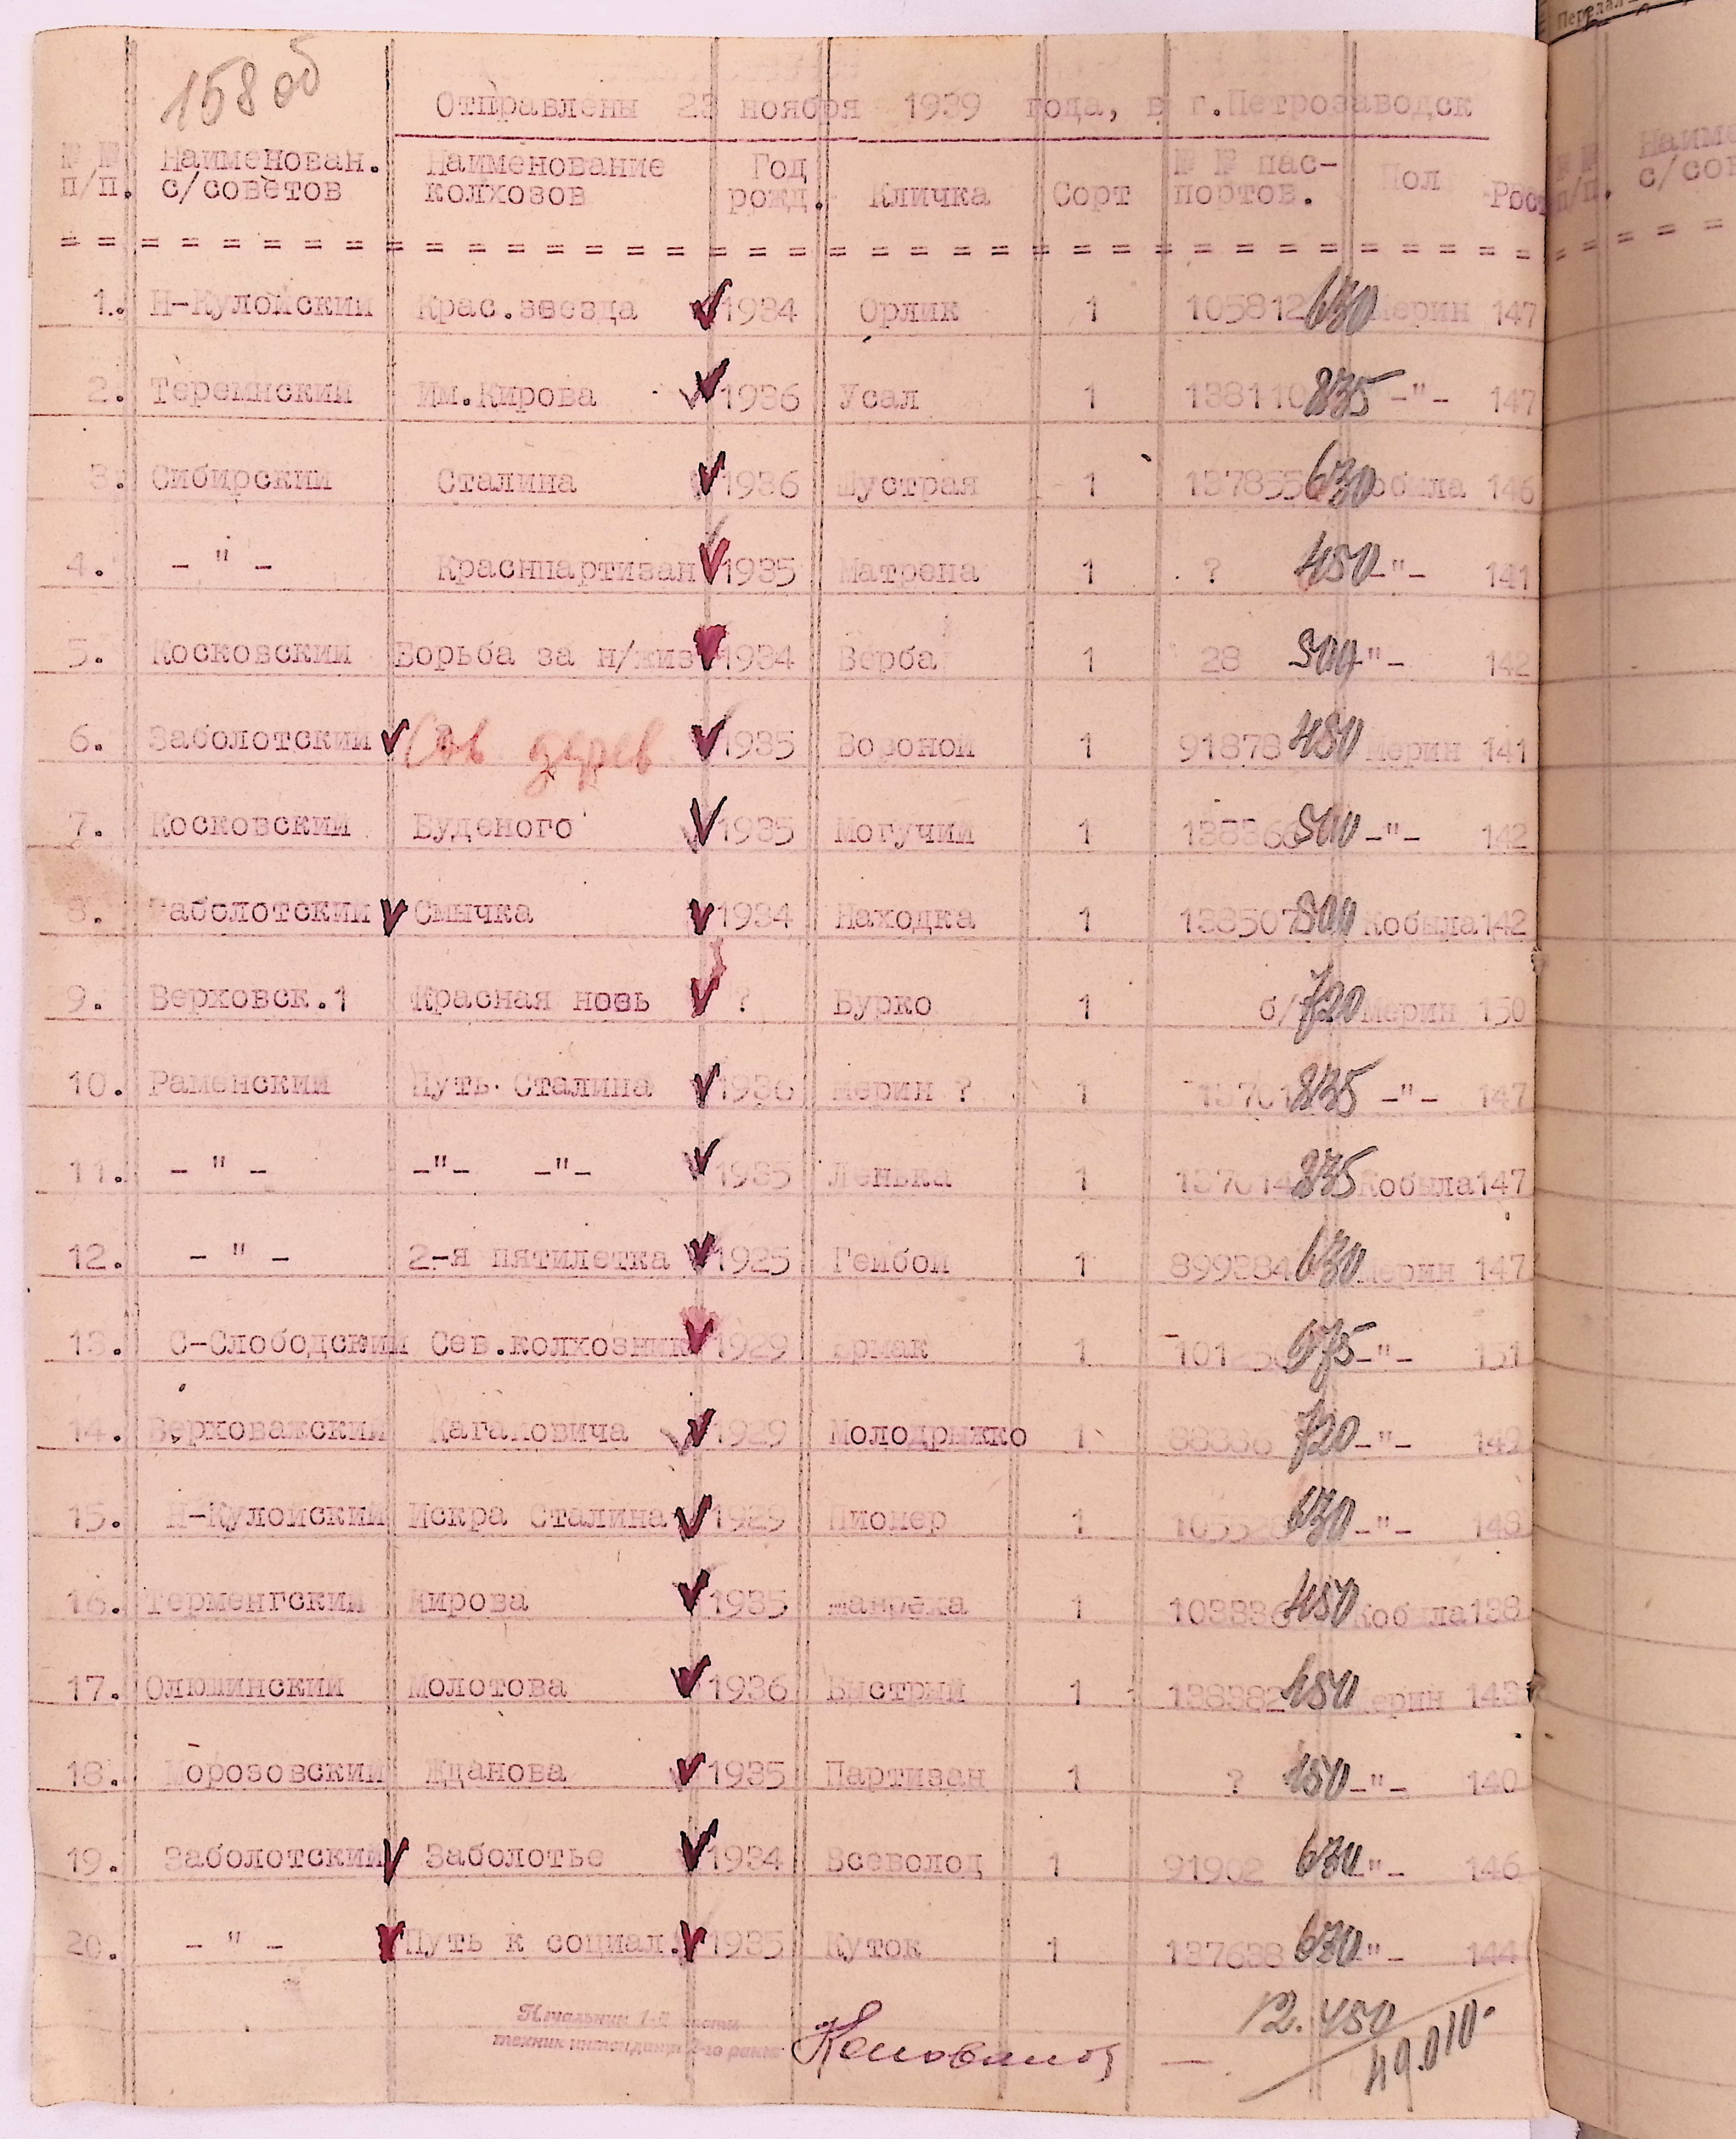 158 об
Отправлены 23 ноября 1939 года, в г.Петрозаводск
№ № п/п. Наименован. с/советов Наименование колхозов Год рожд. Кличка Сорт № № пас-портов. Пол Рост
1. Н-Кулойский Крас.звезда 1934 Орлик 1 105812 630 Мерин 147
2. Теремнский Им.Кирова 1936 Усал 1 138110 835 -"- 147
3. Сибирский Сталина 1936 Шустрая 1 137855 630 Кобыла 146
4. - " - Краснпартизан 1935 Матрена 1 ? 450 -"- 141
5. Косковский Борьба за н/жиз 1934 Верба 1 28 500 -"- 142
6. Заболотский Сов. дерев 1935 Вороной 1 91878 480 Мерин 141
7. Косковский Буденого 1935 Могучий 1 138366 500 -"- 142
8. Заболотский Смычка 1934 Находка 1 138507 500 Кобыла 142
9. Верховск.1 Красная новь ? Бурко 1 б/ 720 Мерин 150
10. Раменский Путь Сталина 1936 Мерин ? 1 835 -"- 147
11. - " - -"- -"- 1935 Ленька 1 137614 835 Кобыла 147
12. - " - 2-я пятилетка 1925 Гейбой 1 899384 630 Мерин 147
13. С-Слободский Сев.колхозник 1929 Ермак 1 675 -"- 151
14. Верховажский Кагановича 1929 Молодрыжко 1 88336 720 -"- 149
15. Н-Кулойский Искра Сталина 1929 Пионер 1 630 -"- 148
16. Терменгский Кирова 1935 1 103836 450 Кобыла 138
17. Олюшинский Молотова 1936 Быстрый 1 138382 450 Мерин 143
18. Морозовский Жданова 1935 Партизан 1 ? 450 -"- 140
19. Заболотский Заболотье 1934 Всеволод 1 91902 630 -"- 146
20. - " - Путь к социал. 1935 Куток 1 137638 630 -"- 144
Начальник 1-й части
техник интендант 2-го ранга
12.450
49.010.
Передал
№ № п/п. Наиме
с/сов